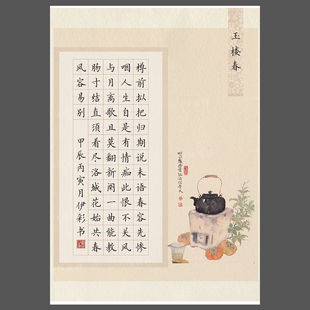 玉楼春
樽前拟把归期说未语春容先惨
咽人生自是有情痴此恨不关风
与月离歌且莫翻新阕一曲能教
肠寸结直须看尽洛城花始共春
风容易别 甲辰丙寅月伊彩书